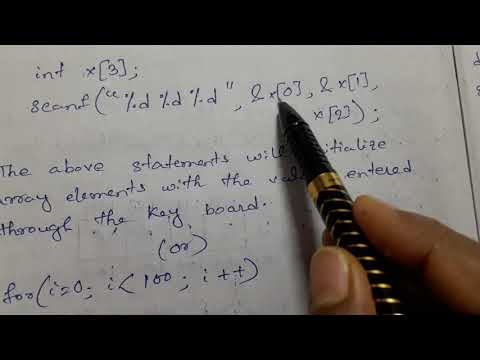 int x[3];
scanf("%d %d %d", &x[0], &x[1],
x[2]);
The above statements will
array elements with the entered
through the key board.
(or)
for(i=0; i<100; i++)